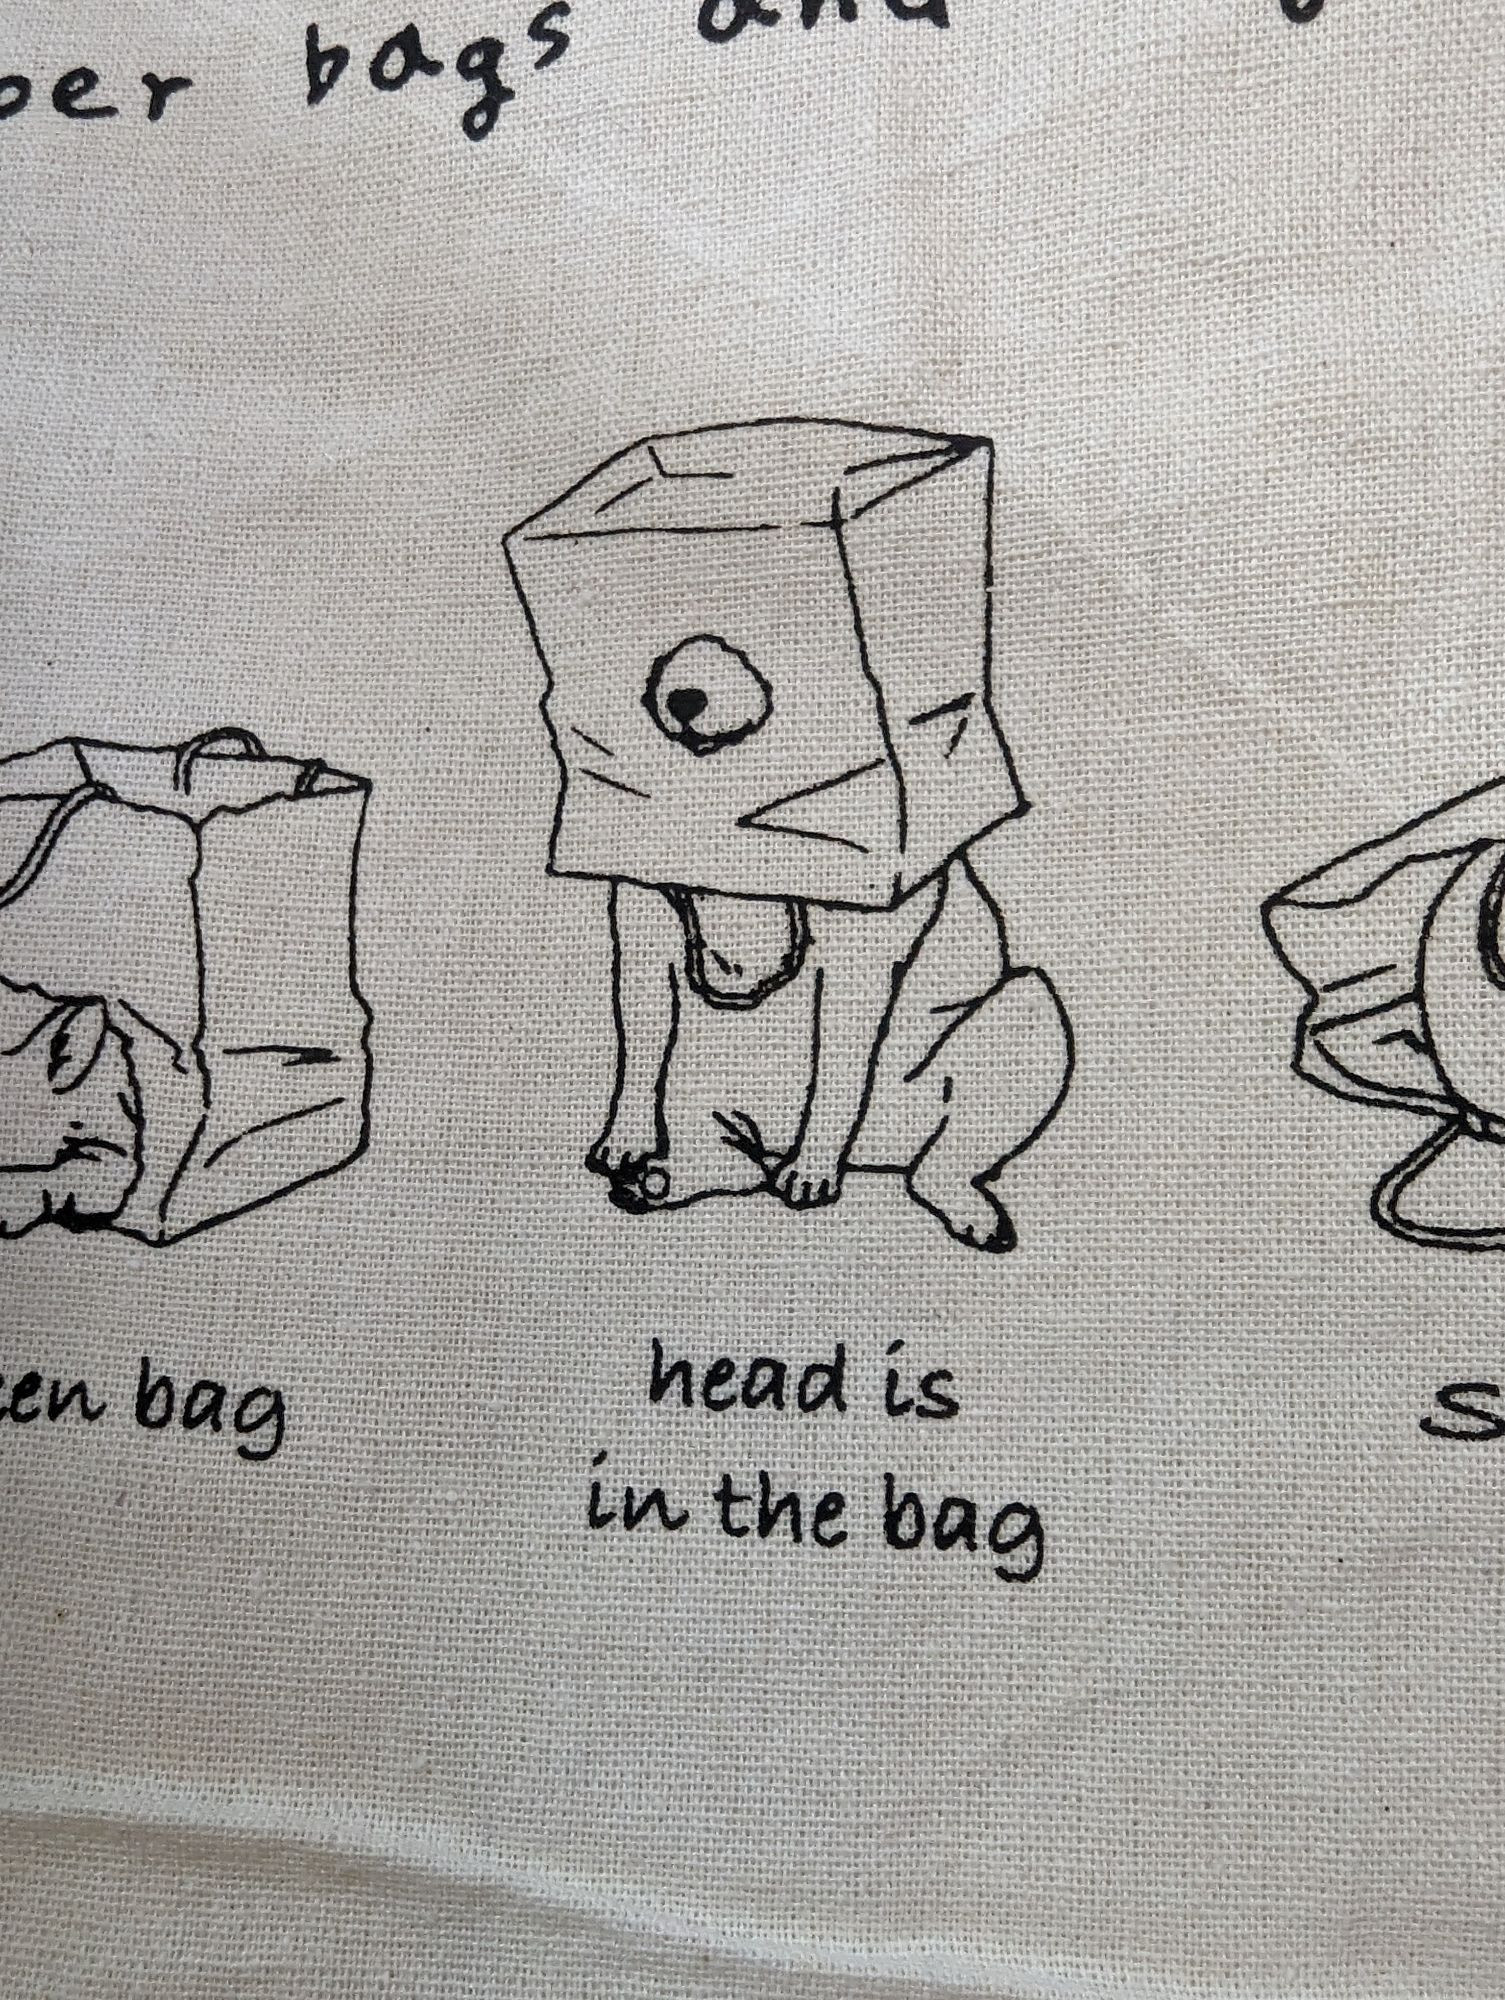 bags and
bag
head is
in the bag